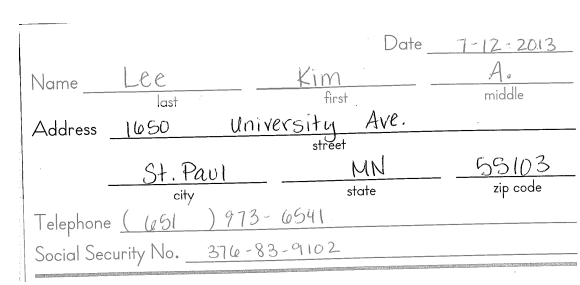 Date 7-12-2013
Name Lee Kim A.
last first middle
Address 1650 University Ave.
street
St. Paul MN 55103
city state zip code
Telephone (651) 973-6541
Social Security No. 376-83-9102